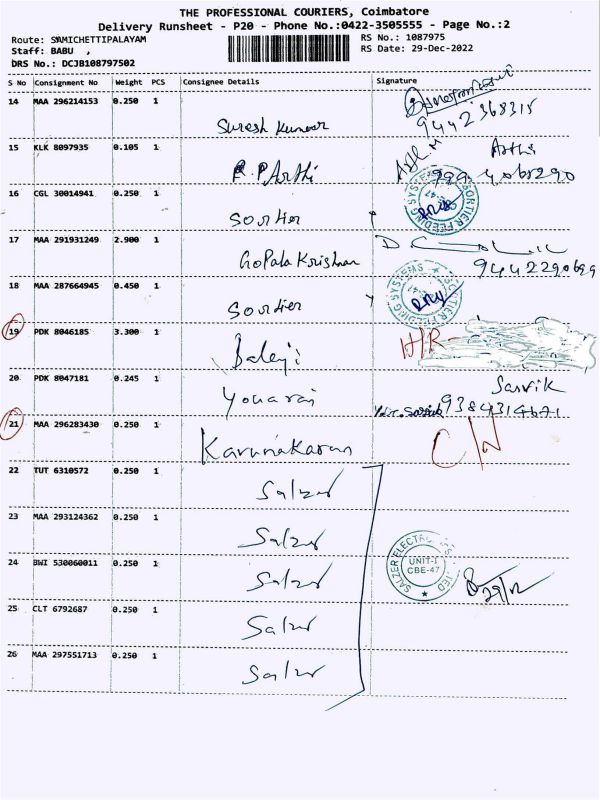 THE PROFESSIONAL COURIERS, Coimbatore
Delivery Runsheet - P20 - Phone No.:0422-3505555 - Page No.:2
Route: SAMICHETTIPALAYAM RS No.: 1087975
Staff: BABU , RS Date: 29-Dec-2022
DRS No.: DCJB108797502
S No Consignment No Weight PCS Consignee Details Signature
14 MAA 296214153 0.250 1 Suresh Kumar 9442368315
15 KLK 8097935 0.105 1 R.P Arthi Arthi
16 CGL 30014941 0.250 1 Sortier SORTIER FEEDING SYSTEMS
17 MAA 291931249 2.900 1 Gopala Krishnan 9442290699
18 MAA 287664945 0.450 1 Sortier SORTIER FEEDING SYSTEMS
19 PDK 8046185 3.300 1 Balaji H/R
20 PDK 8047181 0.245 1 Youaraj Sasvik
9384314671
21 MAA 296283430 0.250 1 Karunakaran C/N
22 TUT 6310572 0.250 1 Salzer
23 MAA 293124362 0.250 1 Salzer
24 BWI 530060011 0.250 1 Salzer SALZER ELECTRONICS LIMITED UNIT-I CBE-47 29/12
25 CLT 6792687 0.250 1 Salzer
26 MAA 297551713 0.250 1 Salzer